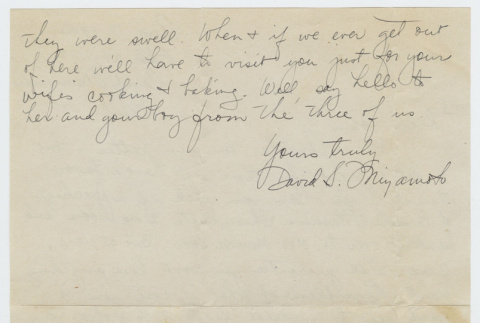 they were swell. When & if we ever get out
of here we'll have to visit you just for your
wife's cooking & baking. Well say hello to
her and your boy from the three of us
Yours truly
David S. Miyamoto